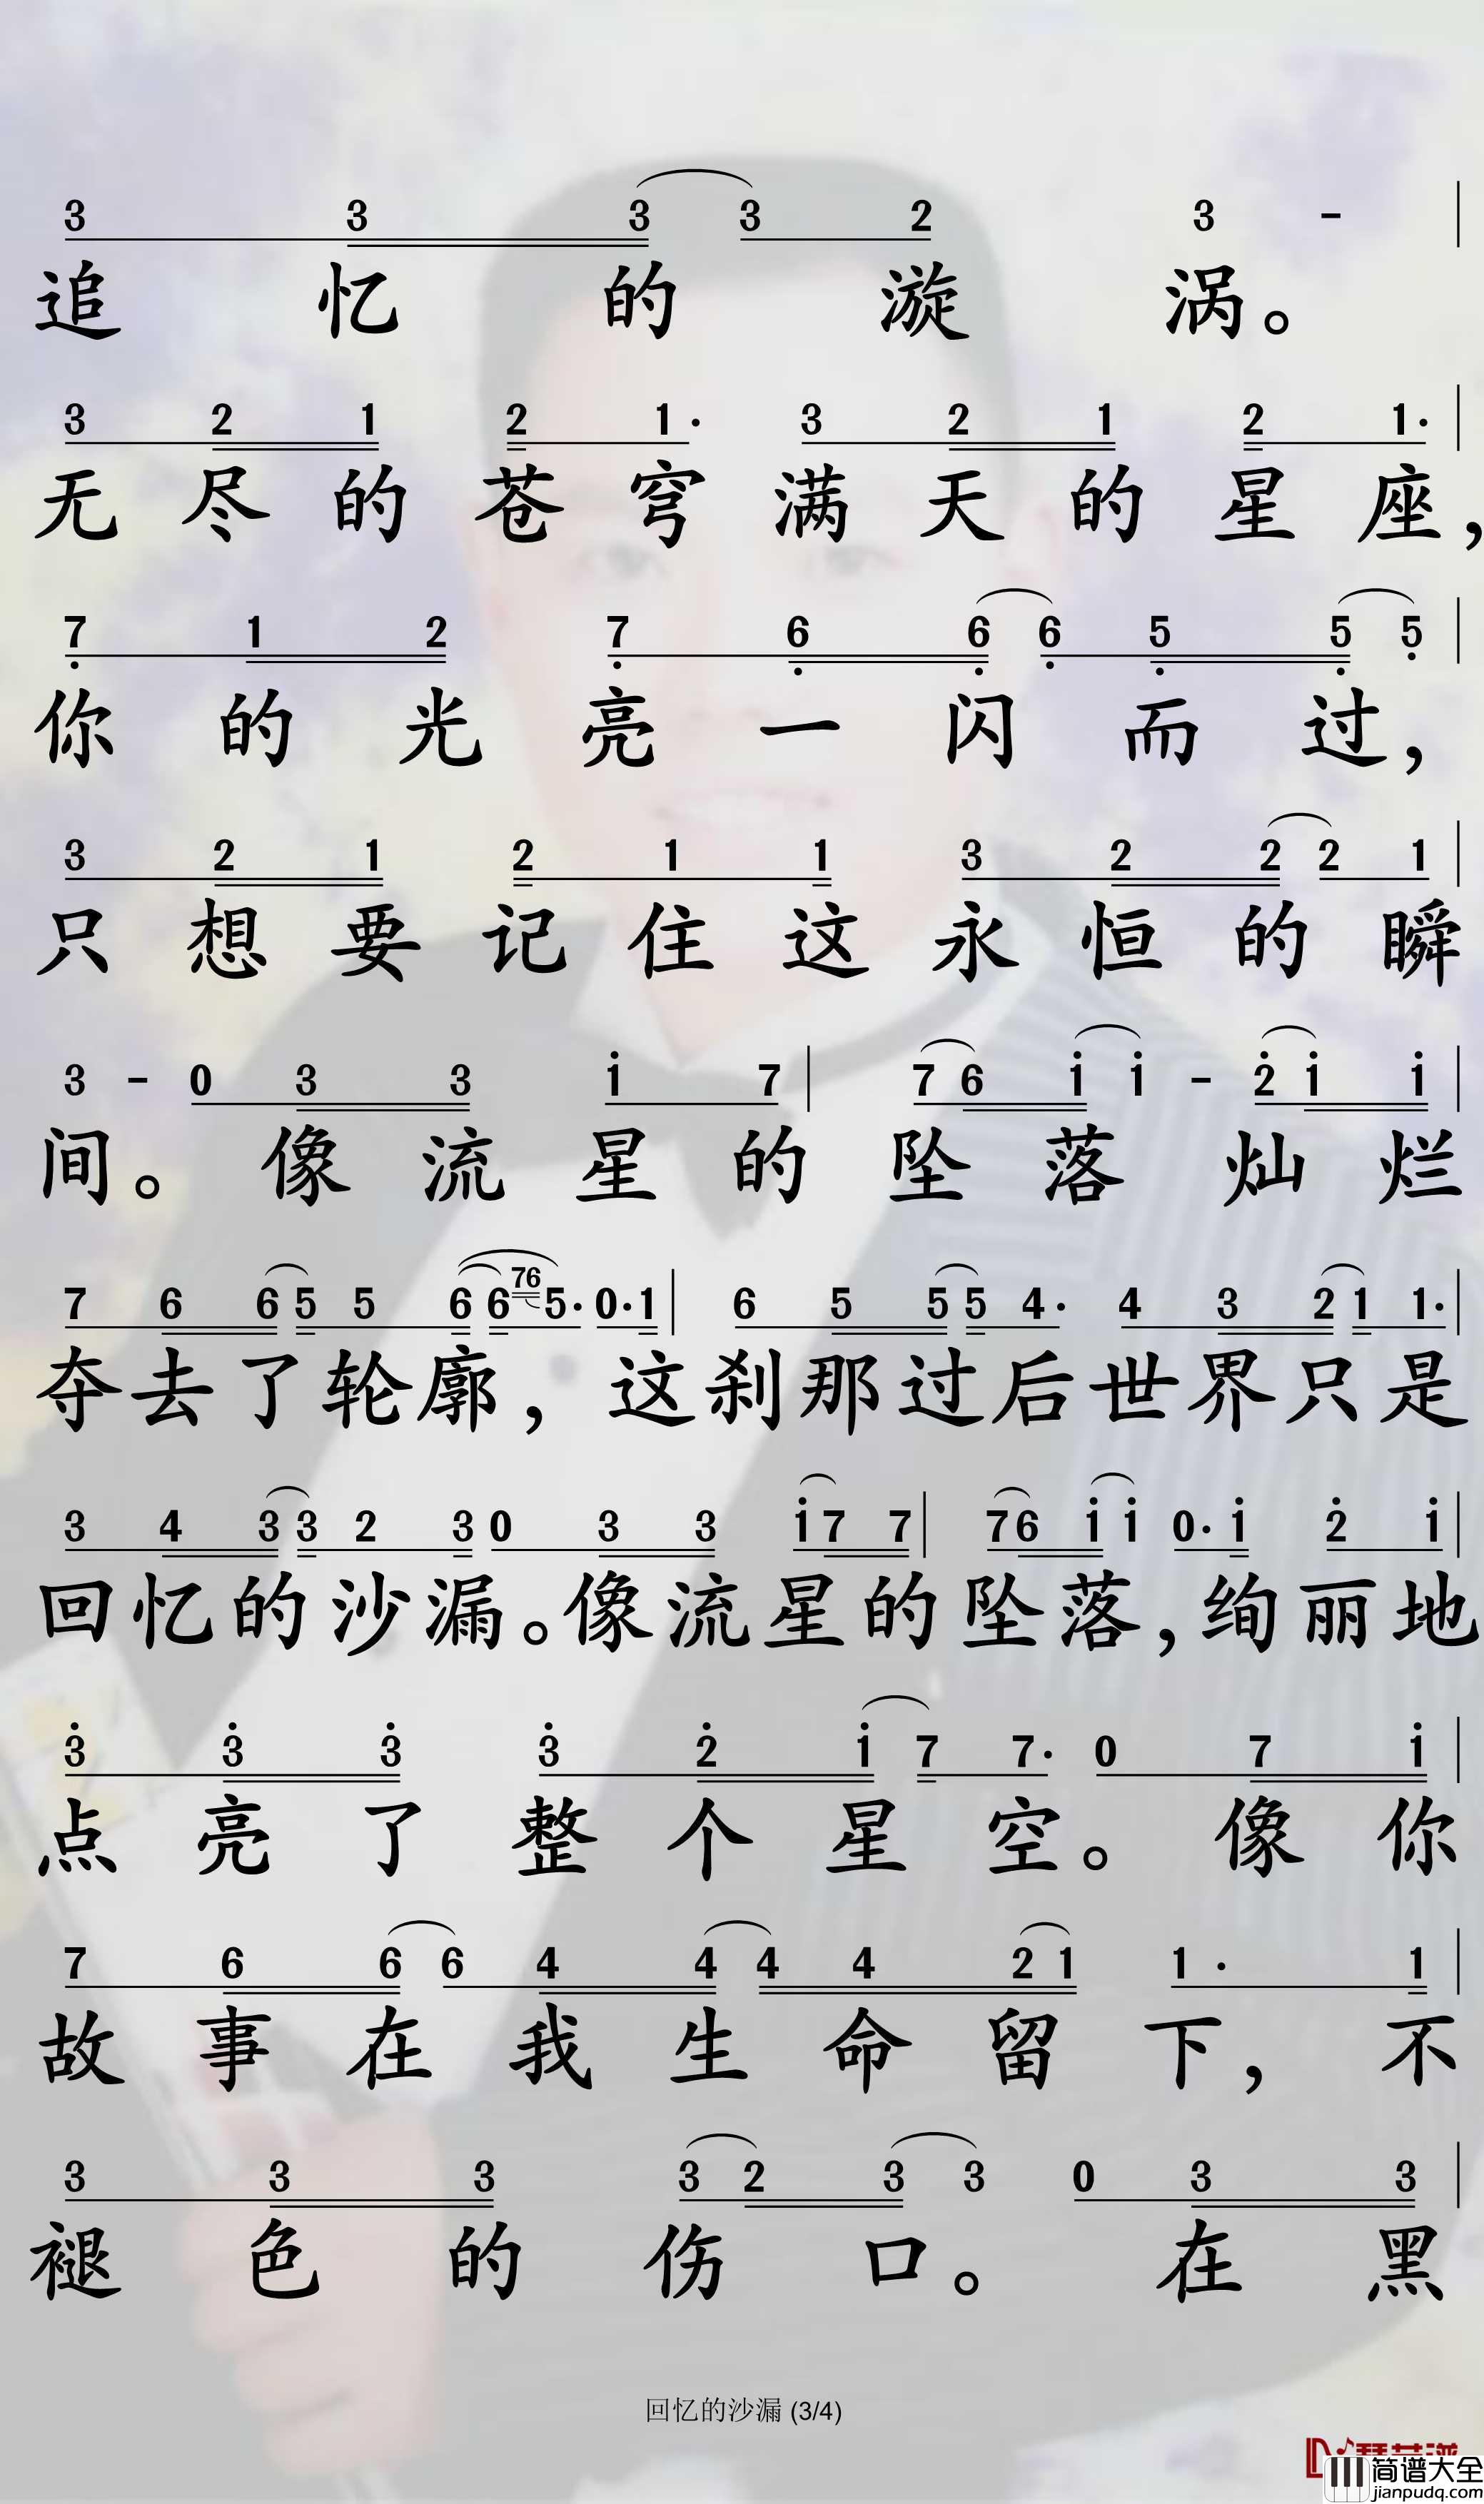 3 3 3 3 2 3 - |
追忆的漩涡。
3 2 1 2 1· 3 2 1 2 1· |
无尽的苍穹满天的星座，
7̣ 1 2 7̣ 6̣ 6̣ 6̣ 5̣ 5̣ 5̣ |
你的光亮一闪而过，
3 2 1 2 1 1 3 2 2 2 1 |
只想要记住这永恒的瞬
3 - 0 3 3 1̇ 7 | 7 6 1̇ 1̇ - 2̇ 1̇ 1̇ |
间。像流星的坠落灿烂
7 6 6 5 5 6 6 76 5· 0· 1 | 6 5 5 5 4· 4 3 2 1 1· |
夺去了轮廓，这刹那过后世界只是
3 4 3 3 2 3 0 3 3 1̇ 7 7 | 7 6 1̇ 1̇ 0· 1̇ 2̇ 1̇ |
回忆的沙漏。像流星的坠落，绚丽地
3̇ 3̇ 3̇ 3̇ 2̇ 1̇ 7 7· 0 7 1̇ |
点亮了整个星空。像你
7 6 6 6 4 4 4 4 2 1 1· 1 |
故事在我生命留下，不
3 3 3 3 2 3 3 0 3 3 |
褪色的伤口。在黑
回忆的沙漏 (3/4)
简谱大全
jianpudq.com